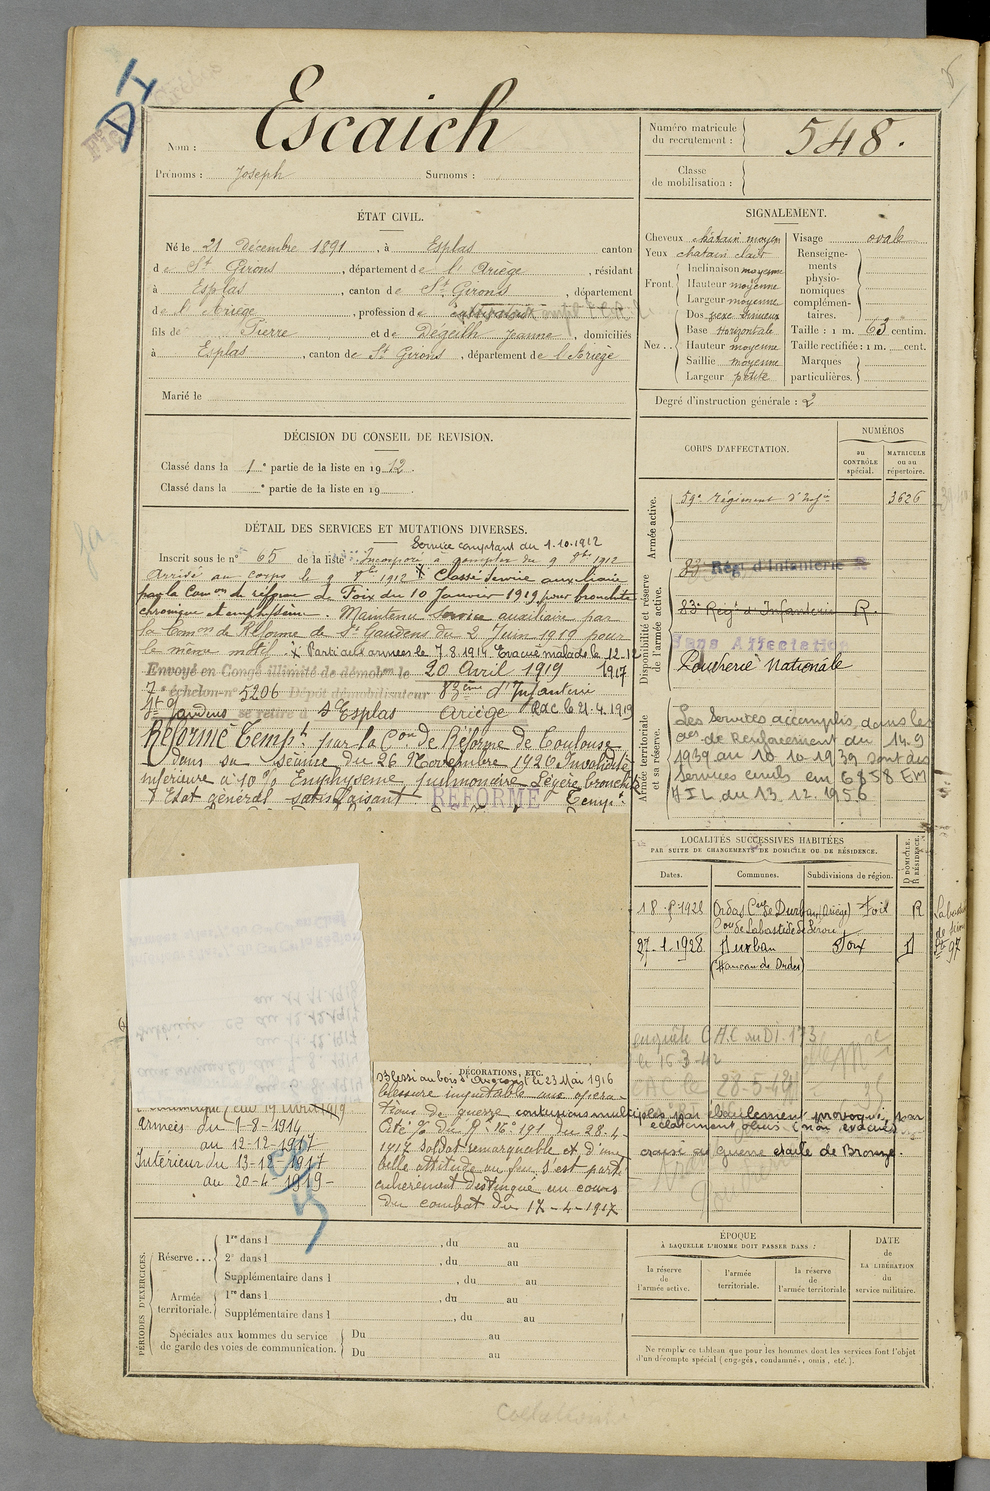 D I
Nom : Escaich
Prénoms : Joseph Surnoms :
Numéro matricule du recrutement : 548.
Classe de mobilisation :
ÉTAT CIVIL.
Né le 21 Décembre 1891, à Esplas canton
de St Girons, département de l'Ariège, résidant
à Esplas, canton de St Girons, département
de l'Ariège, profession de cultivateur
fils de Pierre et de Dégeilh Jeanne, domiciliés
à Esplas, canton de St Girons, département de l'Ariège
Marié le
SIGNALEMENT.
Cheveux châtain moyen
Yeux châtain clair
Front. Inclinaison moyenne
Hauteur moyenne
Largeur moyenne
Nez.. Dos sinueux
Base horizontale
Hauteur moyenne
Saillie moyenne
Largeur petite
Visage ovale
Renseignements physionomiques complémentaires.
Taille : 1 m. 63 centim.
Taille rectifiée : 1 m. cent.
Marques particulières.
Degré d'instruction générale : 2
DÉCISION DU CONSEIL DE REVISION.
Classé dans la 1e partie de la liste en 1912.
Classé dans la e partie de la liste en 19
CORPS D'AFFECTATION.
NUMÉROS
au CONTRÔLE spécial.
MATRICULE ou au répertoire.
Armée active.
59e Régiment d'Infie 3626
Disponibilité et réserve de l'armée active.
83 Rég. d'Infanterie R
83e Regt d'Infanterie R.
Sans Affectation
Poudrerie Nationale
Armée territoriale et sa réserve.
Les Services accomplis dans les
Cies de Renforcement du 14.9
1939 au 10.10.1939 sont des
Services civils em 6858 EM
du 13.12.1956
DÉTAIL DES SERVICES ET MUTATIONS DIVERSES.
Service comptant du 1.10.1912
Inscrit sous le n° 65 de la liste Incorporé à compter du 9 8bre 1912
Arrivé au corps le 9 8bre 1912 X Classé service auxiliaire
par la Comon de réforme de Foix du 10 Janvier 1919 pour bronchite
chronique et emphysème. Maintenu service auxiliaire par
la Comon de Réforme de St Gaudens du 2 Juin 1919 pour
le même motif. X Parti aux armées le 7.8.1914. Evacué malade le 12-12
1917
Envoyé en Congé illimité de démobon le 20 Avril 1919
7e échelon-n° 5206 Dépôt démobilisateur 83ème d'Infanterie
St Gaudens se retire à Esplas Ariège RdC le 21.4.1919
Réformé Tempt par la Con de Réforme de Toulouse
dans sa séance du 26 Novembre 1920 Invalidité
inférieure à 10% Emphysème pulmonaire Légère bronchite
Etat général satisfaisant. RÉFORMÉ Tempt
LOCALITÉS SUCCESSIVES HABITÉES
PAR SUITE DE CHANGEMENTS DE DOMICILE OU DE RÉSIDENCE.
Dates. Communes. Subdivisions de région. D DOMICILE. R RÉSIDENCE.
Ordas Cne de Durban (Ariège) Foix R
Con de Labastide de Sérou
27.1.1928 Durban Foix D
(Hameau de Ordas)
enquête C.A.C
le 16-3-42
CAC le 28-5-42
Armées du 7-8-1914
au 12-12-1917
Intérieur du 13-12-1917
au 20-4-1919-
DÉCORATIONS, ETC.
Blessé au bois d'Avocourt le 23 Mai 1916
blessure imputable aux opéra-
tions de guerre contusions multiples par éboulement provoqué par
éclatement obus (non évacué)
Cité O. du R. N° 191 du 28-4-
1917 Soldat remarquable et d'une
belle attitude au feu. S'est parti-
culièrement distingué au cours
du combat du 17-4-1917
croix de guerre étoile de Bronze.
PÉRIODES D'EXERCICES.
Réserve ... 1re dans l , du au
2e dans l , du au
Supplémentaire dans l , du au
Armée territoriale. 1re dans l , du au
Supplémentaire dans l , du au
Spéciales aux hommes du service de garde des voies de communication. Du au
Du au
ÉPOQUE
À LAQUELLE L'HOMME DOIT PASSER DANS :
la réserve de l'armée active.
l'armée territoriale.
la réserve de l'armée territoriale
DATE de LA LIBÉRATION du service militaire.
Ne remplir ce tableau que pour les hommes dont les services font l'objet
d'un décompte spécial (engagés, condamnés, omis, etc.).